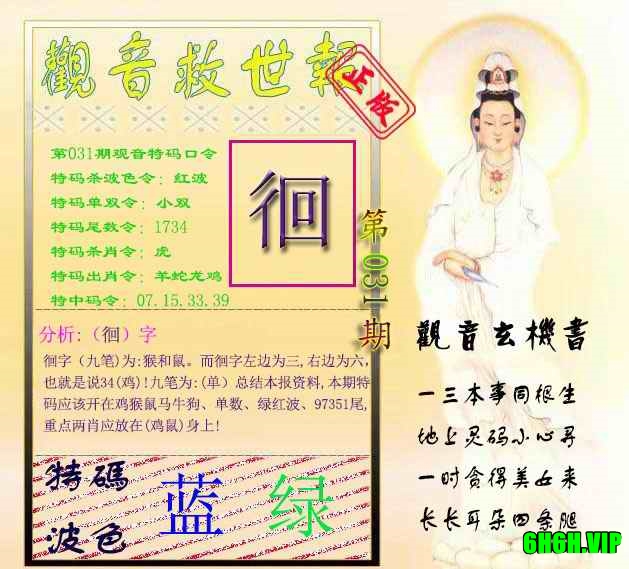 觀音救世報
正版
第031期观音特码口令
特码杀波色令：红波
特码单双令：小双
特码尾数令：1734
特码杀肖令：虎
特码出肖令：羊蛇龙鸡
特中码令：07.15.33.39
徊
第031期
分析:（徊）字
徊字（九笔)为:猴和鼠。而徊字左边为三,右边为六,
也就是说34(鸡)!九笔为:(单）总结本报资料,本期特
码应该开在鸡猴鼠马牛狗、单数、绿红波、97351尾,
重点两肖应放在(鸡鼠)身上!
特碼
波色
蓝 绿
觀音玄機書
一三本事同根生
地上灵码小心寻
一时贪得美女来
长长耳朵四条腿
6H6H.VIP